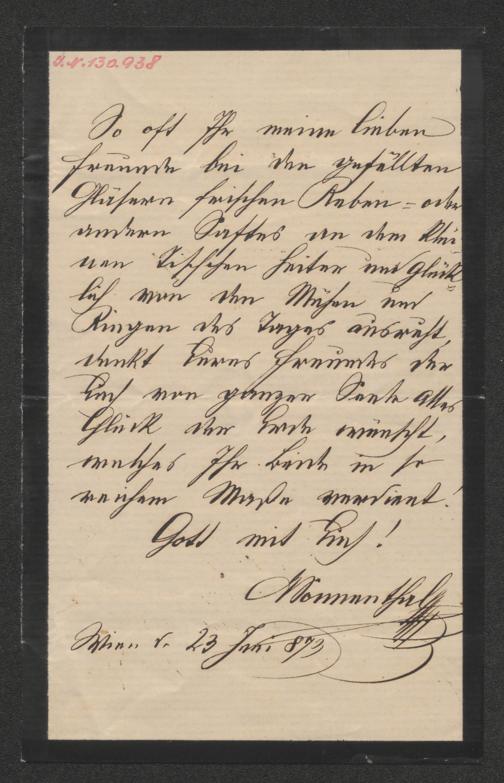 J.N.130.938
So oft Ihr meine lieben
Freunde bei den gefüllten
Gläsern frischen Reben= oder
andern Saftes an dem klei
nen Tischchen heiter und Glück=
lich von den Mühen und
Ringen des Tages ausruht,
denkt Eures Freundes der
Euch von ganzer Seele alles
Glück der Erde wünscht,
welches Ihr Beide in so
reichem Maße verdient!
Gott mit Euch!
ASonnenthal
Wien d. 23 Juni 893